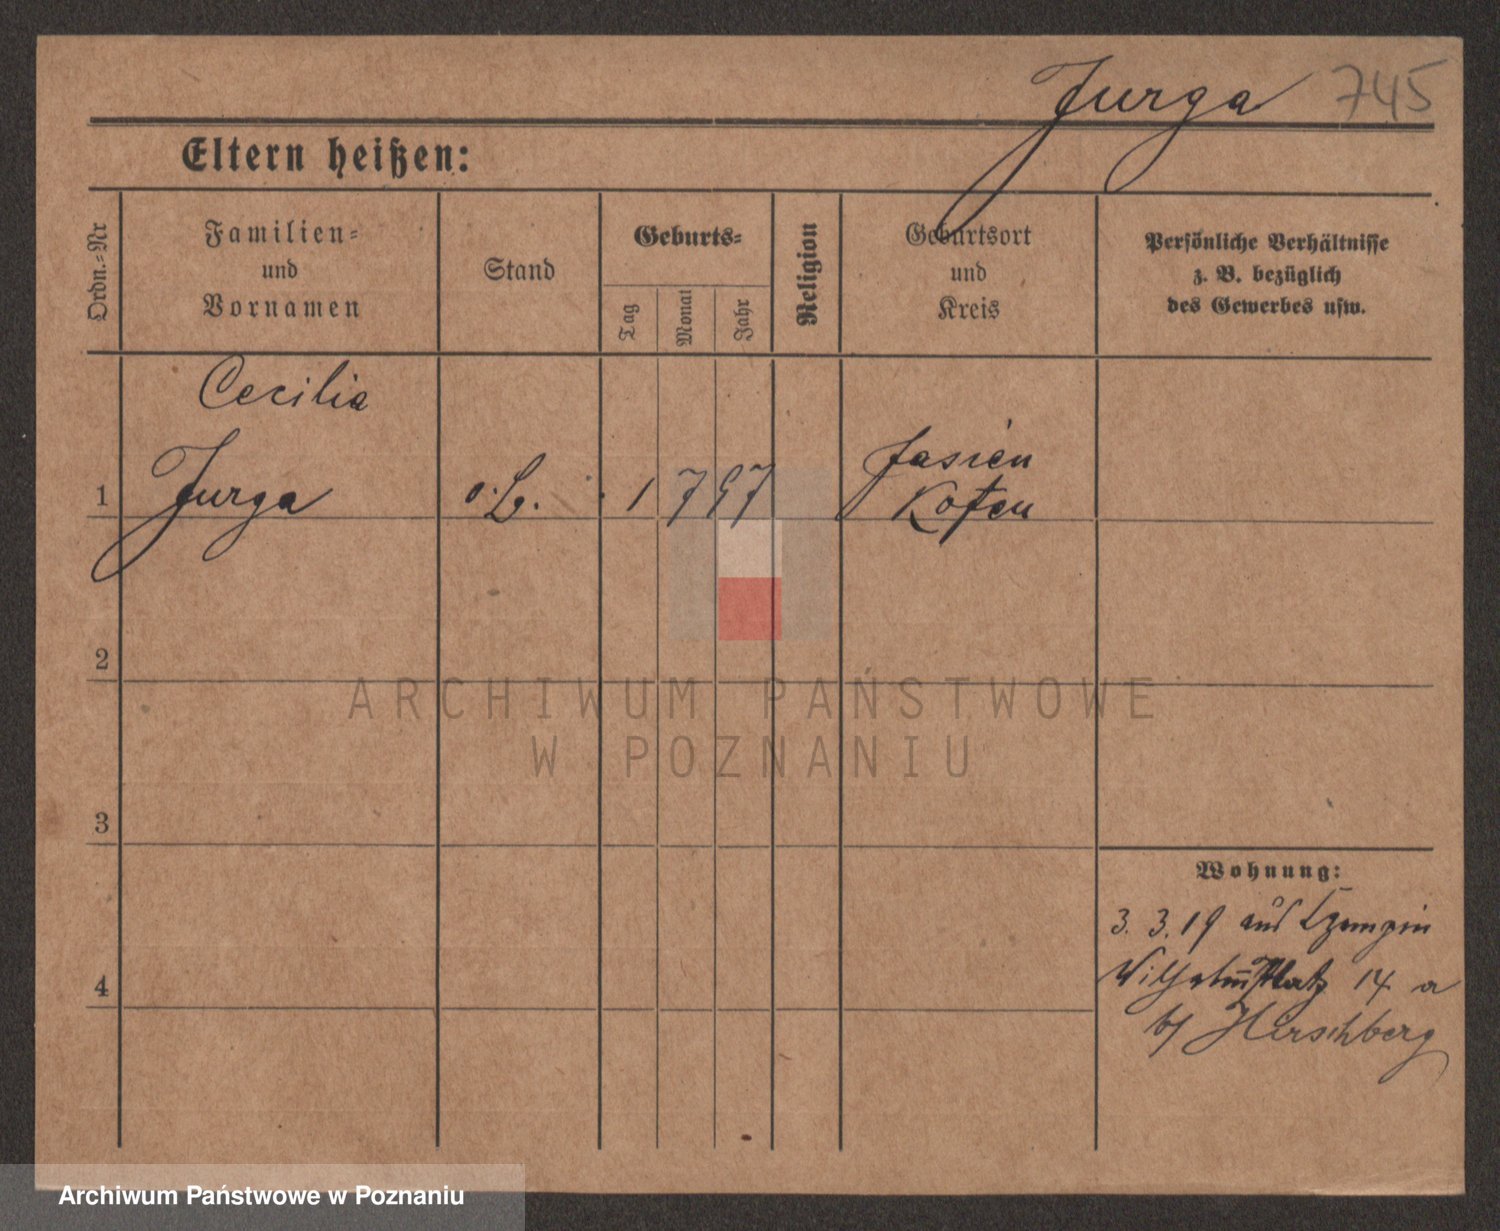 Jurga 745
Eltern heißen:
Ordn.=Nr
Familien=
und
Vornamen
Stand
Geburts=
Tag
Monat
Jahr
Religion
Geburtsort
und
Kreis
Persönliche Verhältnisse
z. B. bezüglich
des Gewerbes usw.
Cecilia
1 Jurga o. L. 1 7 97 Jasien
Kosten
2
3
4
Wohnung:
3. 3. 19 aus Czempin
Wilhelmplatz 14 a
b/ Hirschberg
ARCHIWUM PAŃSTWOWE
W POZNANIU
Archiwum Państwowe w Poznaniu